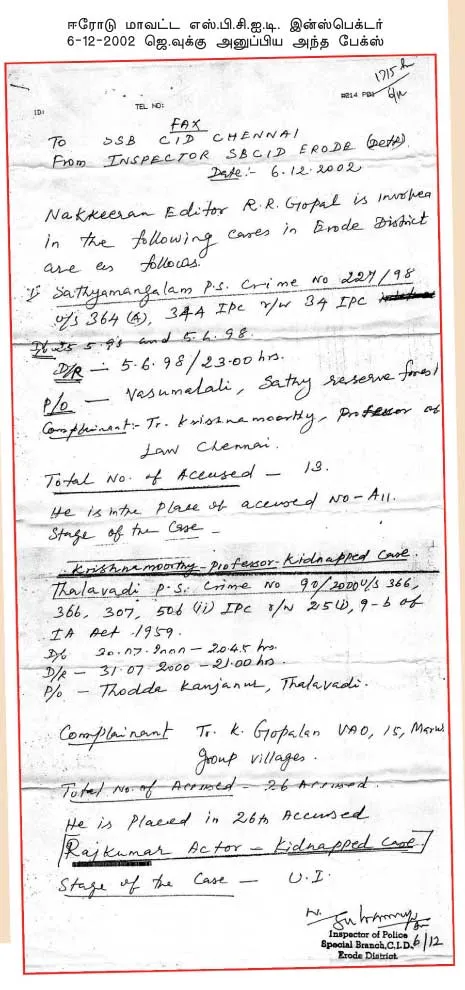 ஈரோடு மாவட்ட எஸ்.பி.சி.ஐ.டி. இன்ஸ்பெக்டர்
6-12-2002 ஜெ.வுக்கு அனுப்பிய அந்த பேக்ஸ்
1715 h
6/12
ID:
TEL NO:
#214 P01
FAX
To SSB CID CHENNAI
From INSPECTOR SBCID ERODE
Date:- 6.12.2002
Nakkeeran Editor R.R. Gopal is involved
in the following cases in Erode District
are as follows.
Sathyamangalam P.S. Crime No 227/98
u/s 364 (A), 344 IPC r/w 34 IPC
5.98 and 5.6.98.
D/R - 5.6.98/23.00 hrs.
P/O - Vasumalali, Sathy reserve forest
Complainant:- Tr. Krishnamoorthy, Professor of
Law Chennai.
Total No. of Accused - 13.
He is in the Place of accused No-A11.
Stage of the Case -
Krishnamoorthy-professor-Kidnapped Case
Thalavadi P.S. Crime No 90/2000 u/s 366,
366, 307, 506 (ii) IPC r/w 9-b of
IA Act 1959.
D/o 20.07.2000 - 2045 hrs.
D/R - 31.07.2000 - 21.00 hrs.
P/o - Thodda Kanjanur, Thalavadi.
Complainant Tr. K. Gopalan VAO, 15,
group villages.
Total No. of Accused - 26 Accused.
He is Placed in 26th Accused
Rajkumar Actor - Kidnapped Case
Stage of the Case - U.I.
Inspector of Police
Special Branch, C.I.D. 6/12
Erode District.